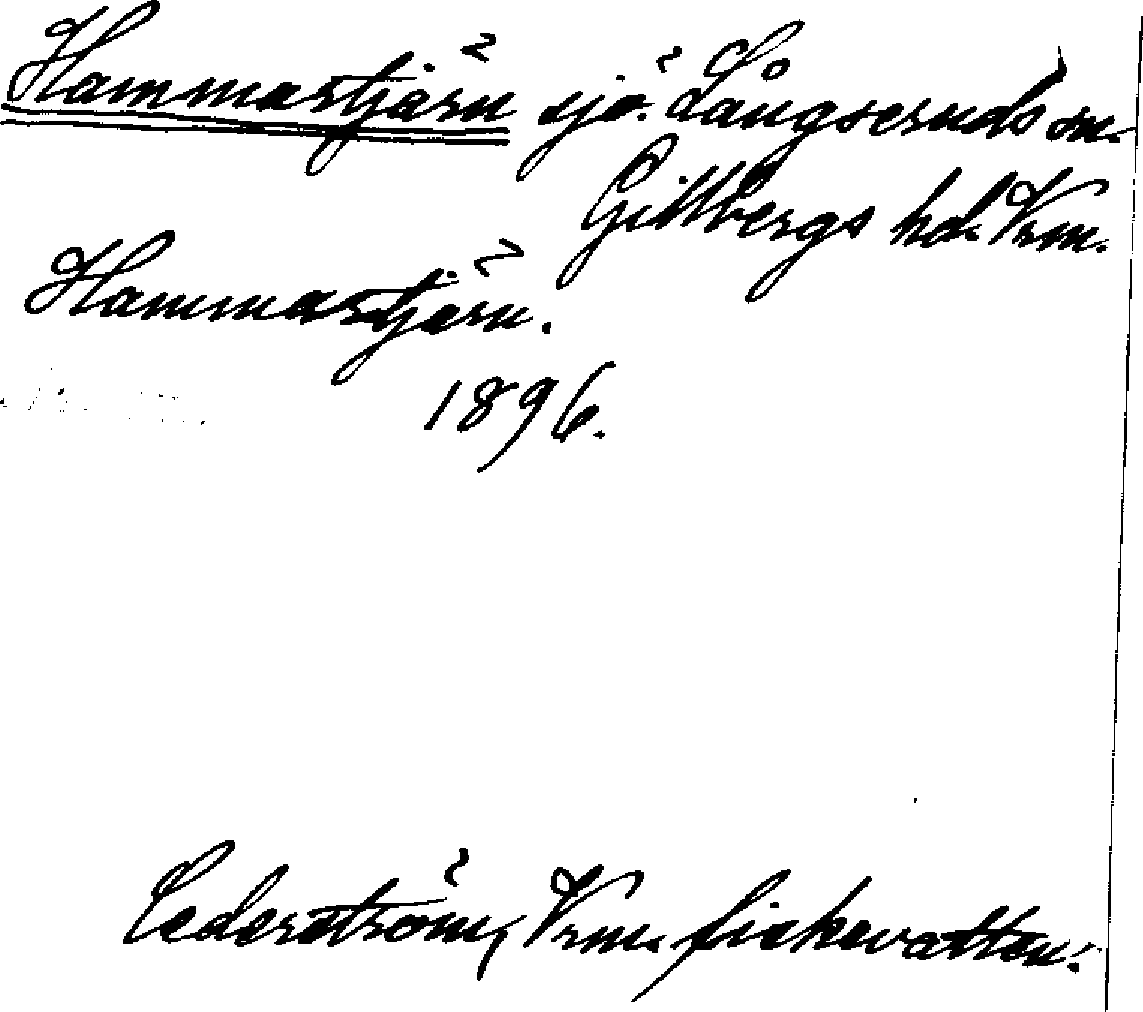 Hammastjärn sjö. Långseruds sn.
Gillbergs hd. Vrm.
Hammastjärn.
1896.
Cederström, Vrm. fiskevatten.